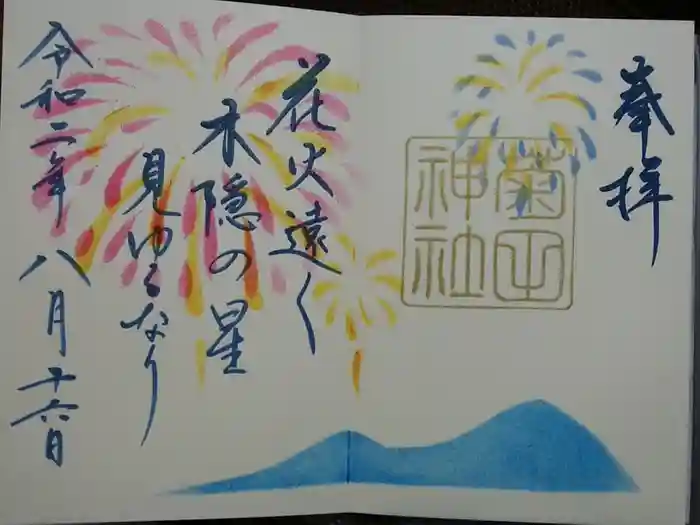 奉拝
菊田
神社
花火遠く
木隠の星
見ゆるなり
令和二年 八月十六日